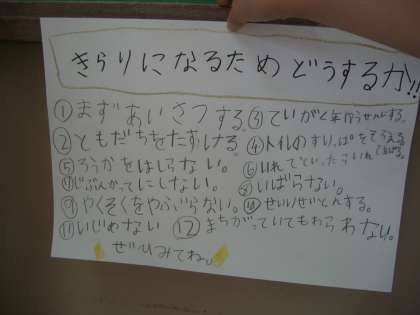 きらりになるためどうする力!!
①まずあいさつする。③ていがく年ゆうせんする。
②ともだちをたすける。④トイレのすりっぱをそろえる。
⑤ろうかをはしらない。⑥いれてといったらいれてあげる。
⑦じぶんかってにしない。⑧いばらない。
⑨やくそくをやぶらない。⑩せいりせいとんする。
⑪いじめない ⑫まちがっていてもわらわない。
ぜひみてね。